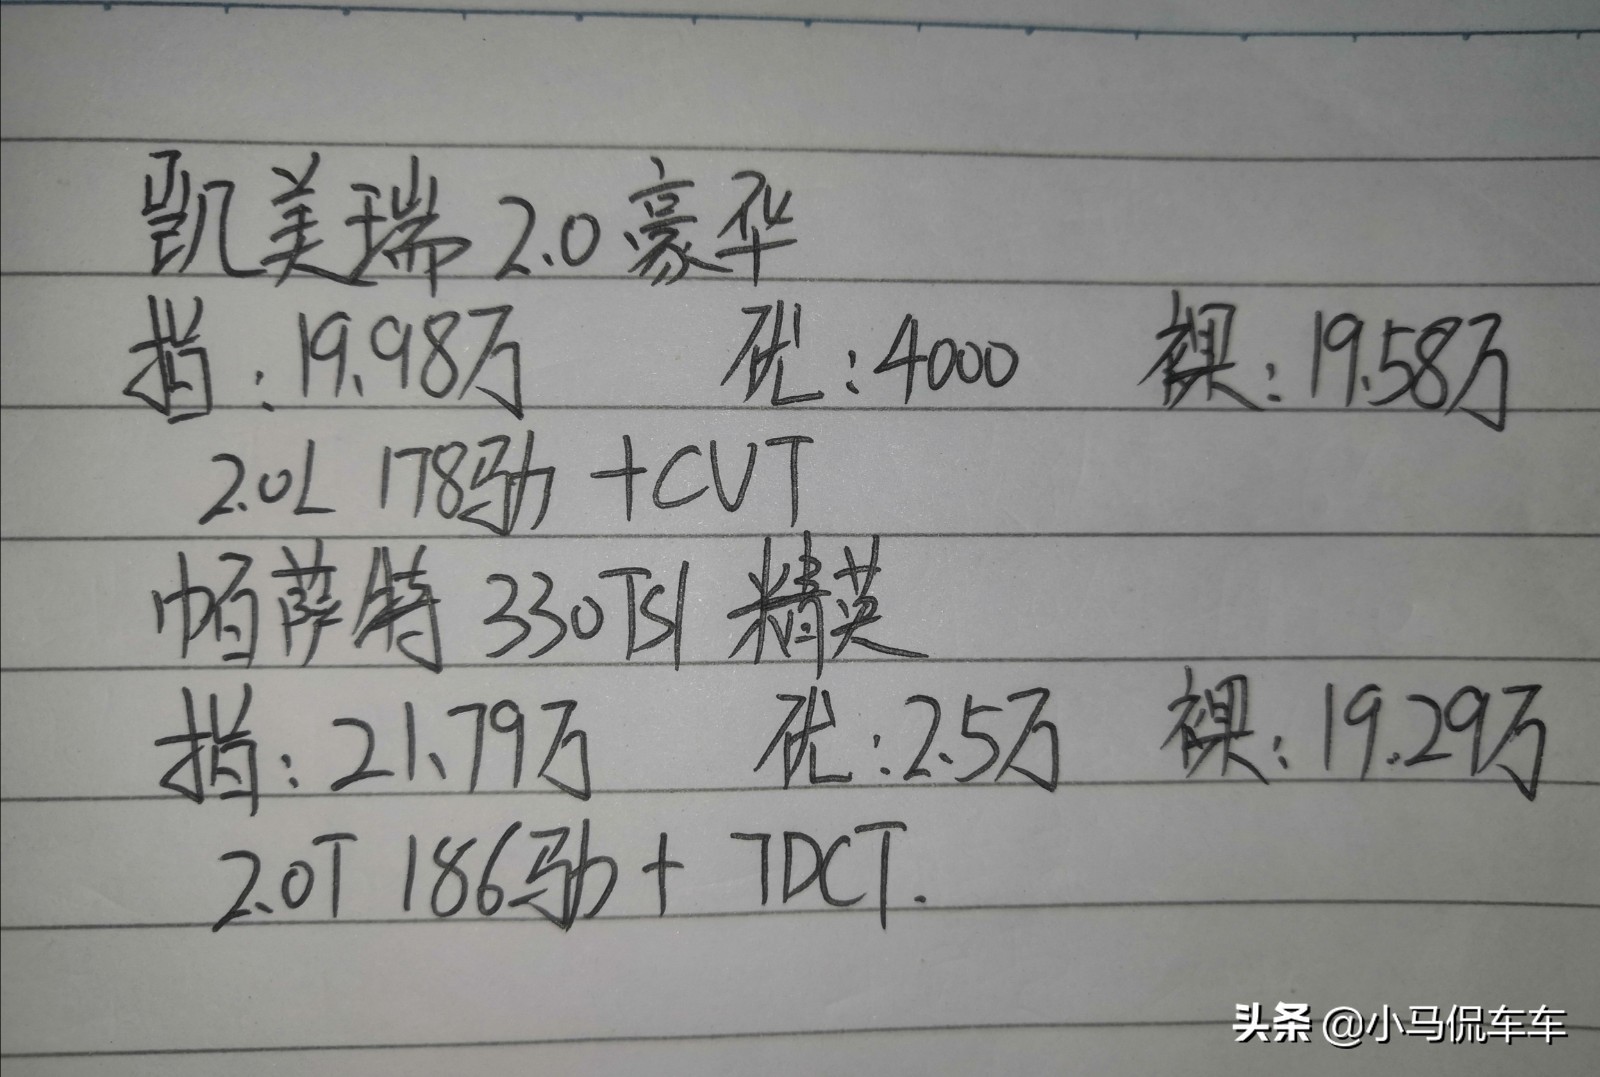 凯美瑞 2.0 豪华
指:19.98万 优:4000 裸:19.58万
2.0L 178动 +CVT
帕萨特 330TSI 精英
指:21.79万 优:2.5万 裸:19.29万
2.0T 186动+ 7DCT.
头条 @小马侃车车